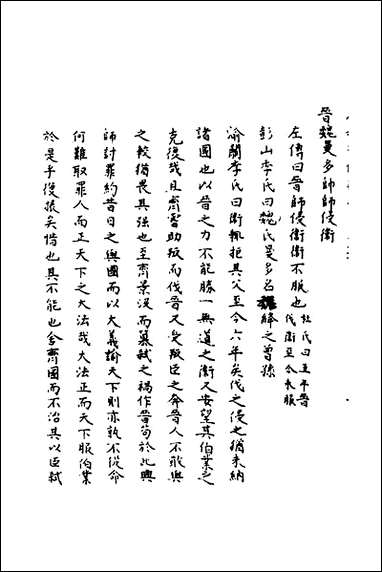 晉魏曼多帥師侵衛
左傳曰晉師侵衛衛不服也 杜氏曰五年晉伐衛至今未服
彭山李氏曰魏氏曼多名絳之曾孫
渝關李氏曰衛輒拒其父至今六年矣伐之侵之猶未納
諸國也以晉之力不能勝一無道之衛又安望其伯業之
克復哉且齊嘗助叛而伐晉又受叛臣之奔晉人不敢與
之較猶畏其強也至齊景沒而纂弒之禍作晉苟於此興
師討罪約昔日之與國而以大義諭天下則亦孰不從命
何難取罪人而正天下之大法哉大法正而天下服伯業
於是乎復振矣惜也其不能也舍齊國而不治其以臣弒